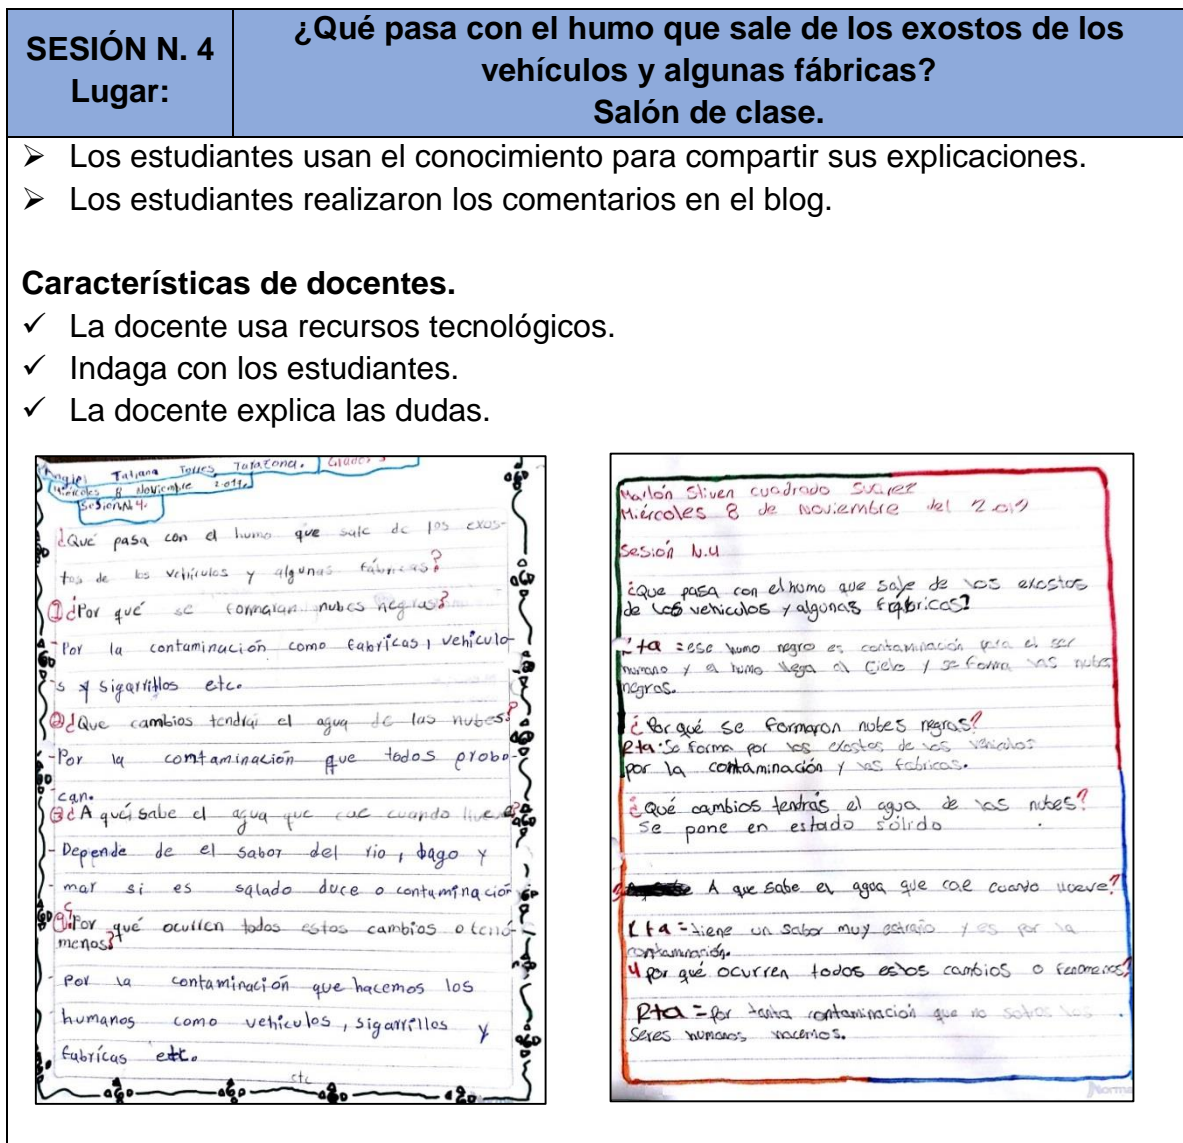 SESIÓN N. 4
Lugar:
¿Qué pasa con el humo que sale de los exostos de los
vehículos y algunas fábricas?
Salón de clase.
Los estudiantes usan el conocimiento para compartir sus explicaciones.
Los estudiantes realizaron los comentarios en el blog.
Características de docentes.
La docente usa recursos tecnológicos.
Indaga con los estudiantes.
La docente explica las dudas.
Tatiana Torres Tarazona.
Miércoles 8 Noviembre
Sesión N.4.
¿Qué pasa con el humo que sale de los exos-
tos de los vehículos y algunas fábricas?
① ¿Por qué se formaran nubes negras?
- Por la contaminación como fabricas, vehiculo-
s y sigarrillos etc.
② ¿Que cambios tendrai el agua de las nubes?
- Por la contaminación que todos probo-
can.
③ ¿A qué sabe el agua que cae cuando llueve?
- Depende de el sabor del rio, lago y
mar si es salado duce o contaminación
④ ¿Por qué ocurren todos estos cambios o fenó-
menos?
Por la contaminación que hacemos los
humanos como vehiculos, sigarrillos y
fabrícas etc.
etc
Marlón Stiven cuadrado Suarez
Miércoles 8 de Noviembre del
Sesión N.4
¿Que pasa con el humo que sale de los exostos
de los vehiculos y algunas fábricas?
Rta = ese humo negro es contaminación para el ser
humano y el humo llega al Cielo y se forma las nubes
negras.
¿Por qué se formaron nubes negras?
Rta: Se forma por los exostos de los vehiculos
por la contaminación y las fabricas.
¿Qué cambios tendrás el agua de las nubes?
Se pone en estado sólido
A que sabe el agua que cae cuando llueve?
Rta = tiene un sabor muy y es por la
contaminación.
4 por qué ocurren todos estos cambios o fenomenos?
Rta = por tanta contaminación que los
Seres humanos hacemos.
Norma